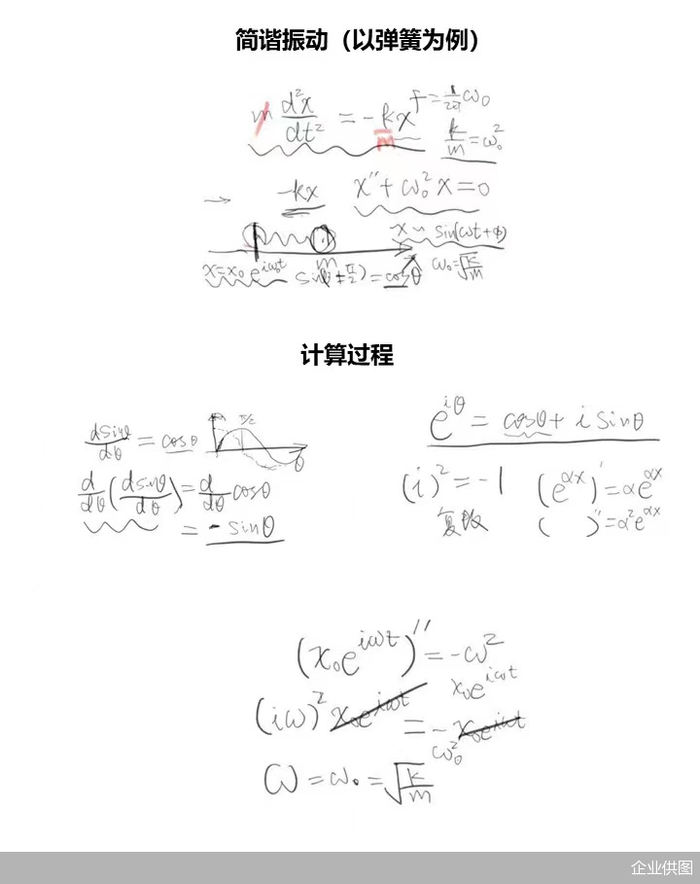 简谐振动（以弹簧为例）
m d²x/dt² = -kx
m
f = 1/2π ω₀
k/m = ω₀²
→ -kx
x″ + ω₀² x = 0
x ~ sin(ωt + φ)
m
x = x₀ e^{iωt}
= cosθ
ω₀ = √(k/m)
计算过程
dsinθ/dθ = cosθ
π/2
θ
d/dθ (dsinθ/dθ) = d/dθ cosθ
= - sinθ
e^{iθ} = cosθ + i sinθ
(i)² = -1
复数
(e^{αx})′ = αe^{αx}
( )″ = α²e^{αx}
(x₀e^{iωt})″ = -ω² x₀e^{iωt}
(iω)² x₀e^{iωt} = -ω₀² x₀e^{iωt}
ω = ω₀ = √(k/m)
企业供图